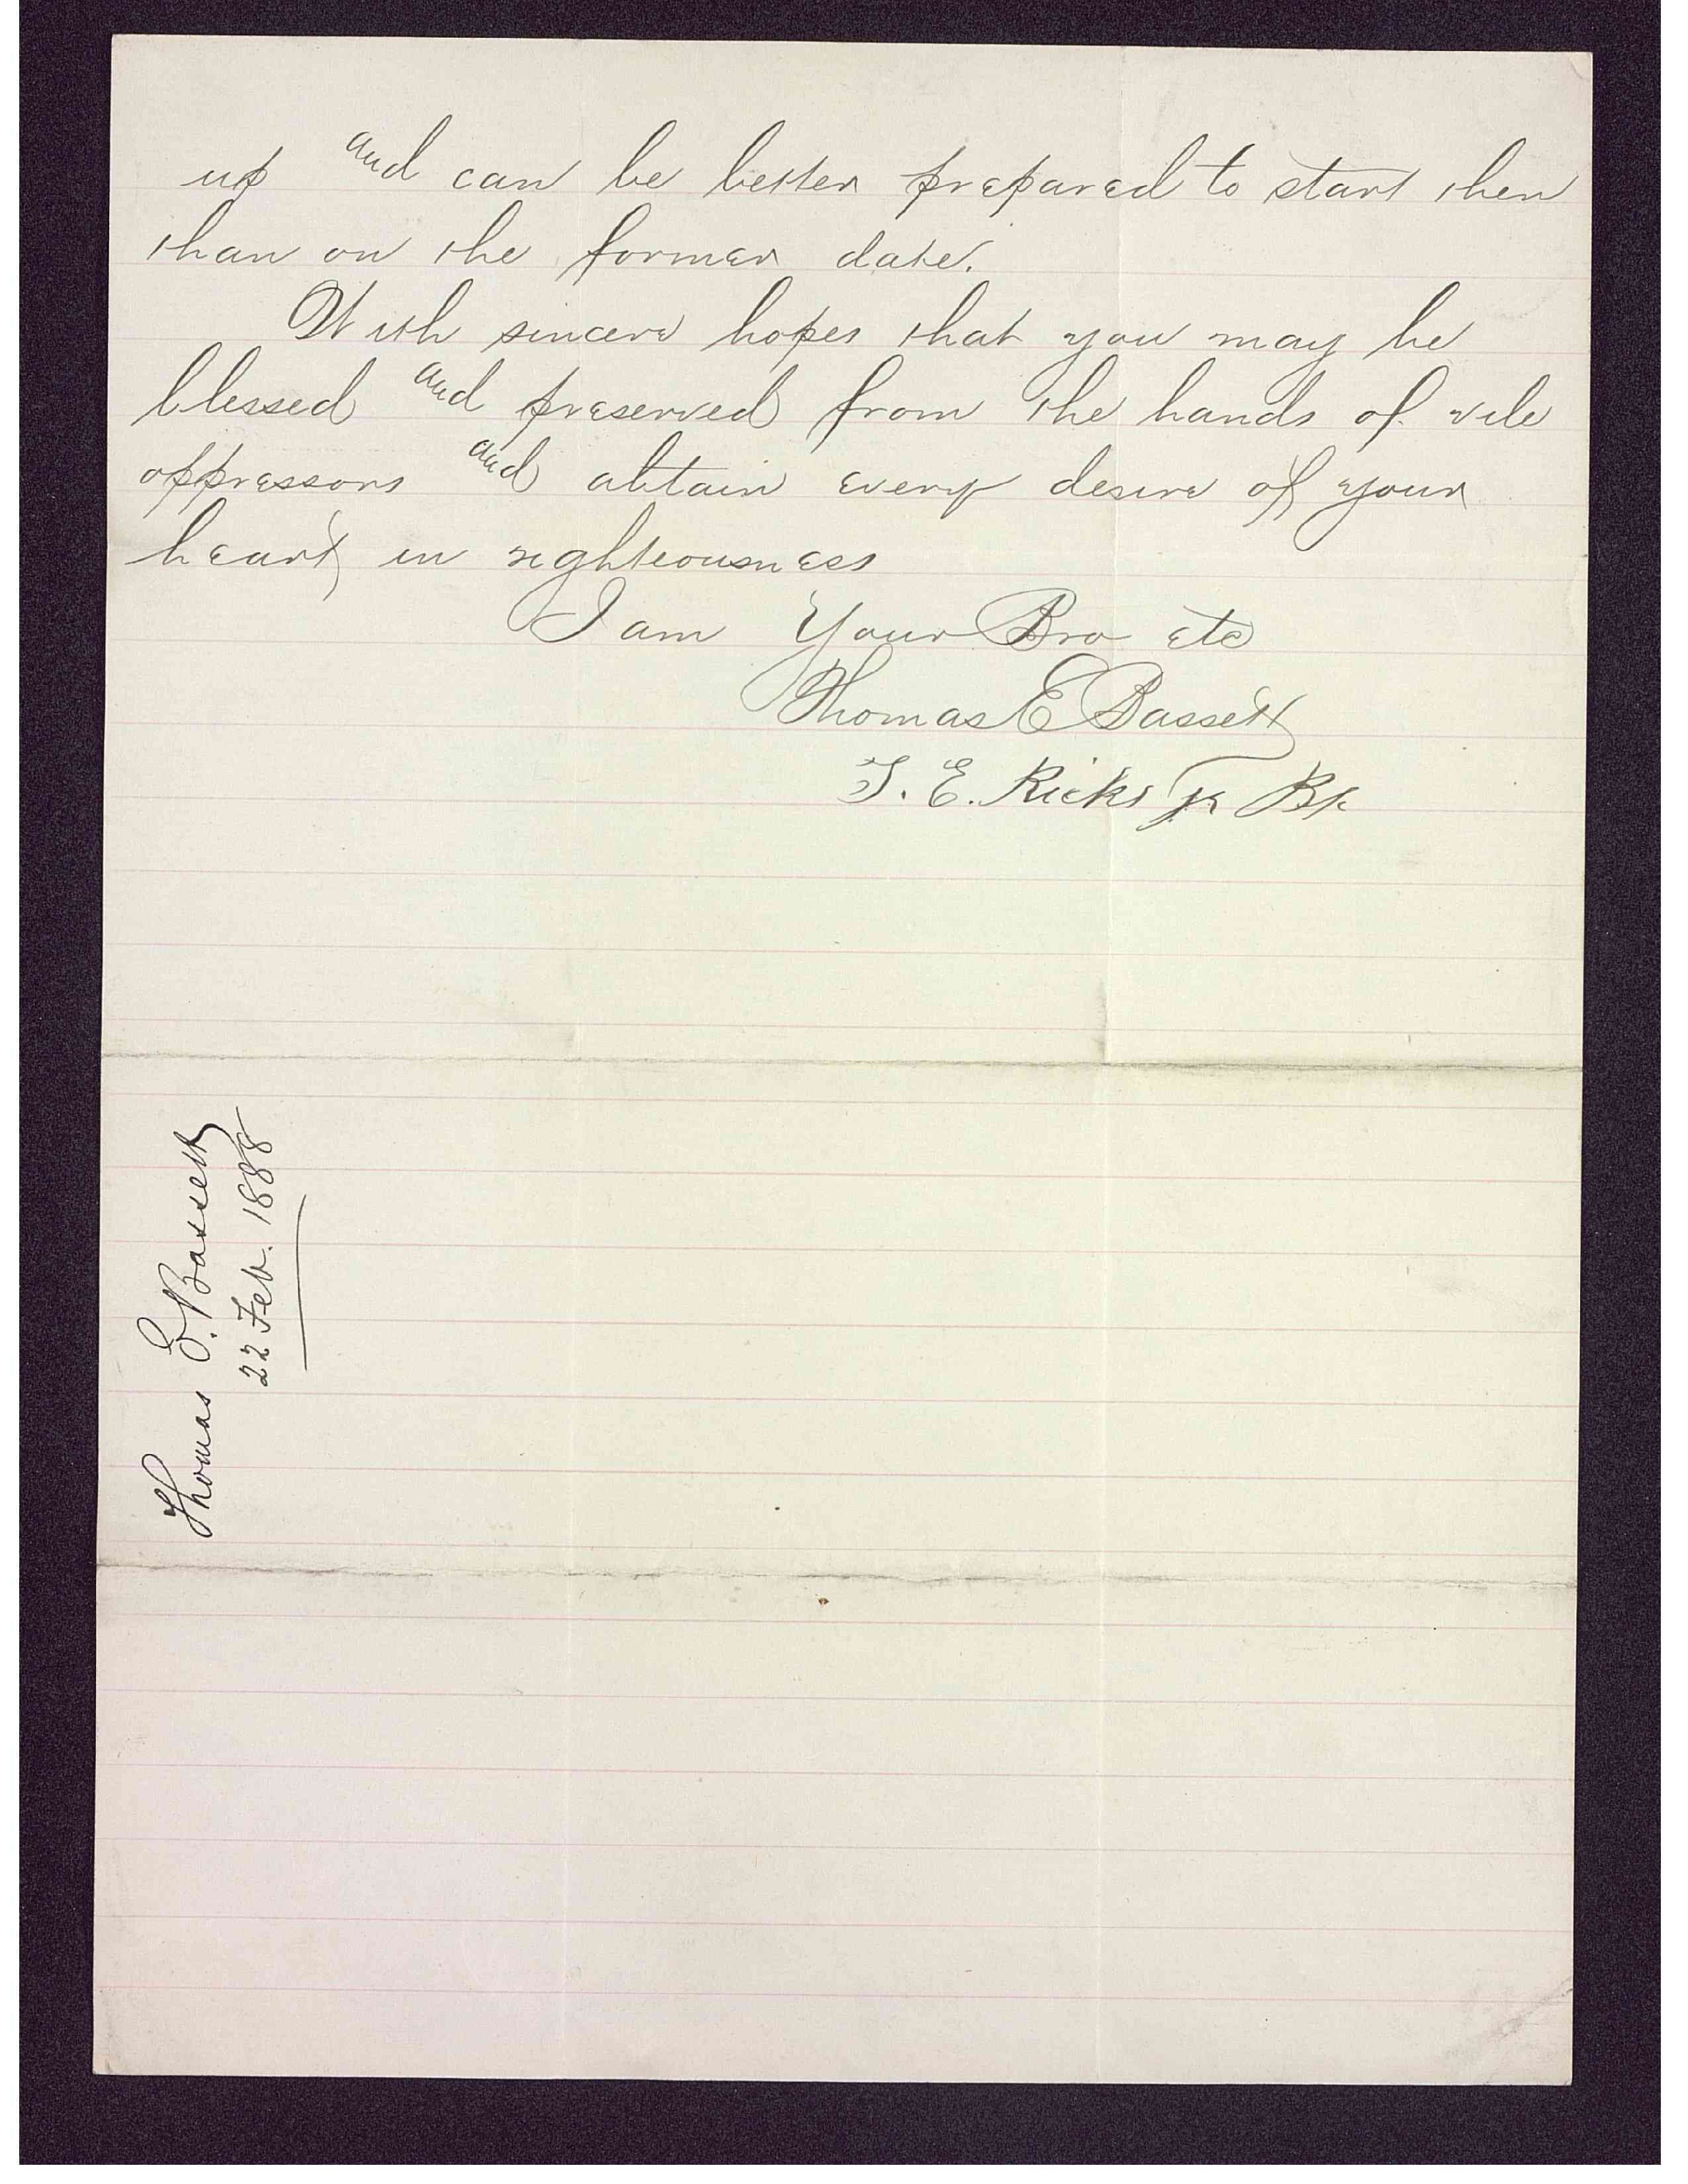 up and can be better prepared to start then
than on the former date.
With sincere hopes that you may be
blessed and preserved from the hands of vile
oppressors and abtain every desire of your
heart in righteousness
I am Your Bro etc
Thomas E Bassett
T. E. Ricks Jr Bp
Thomas E. Bassett
22 Feb. 1888